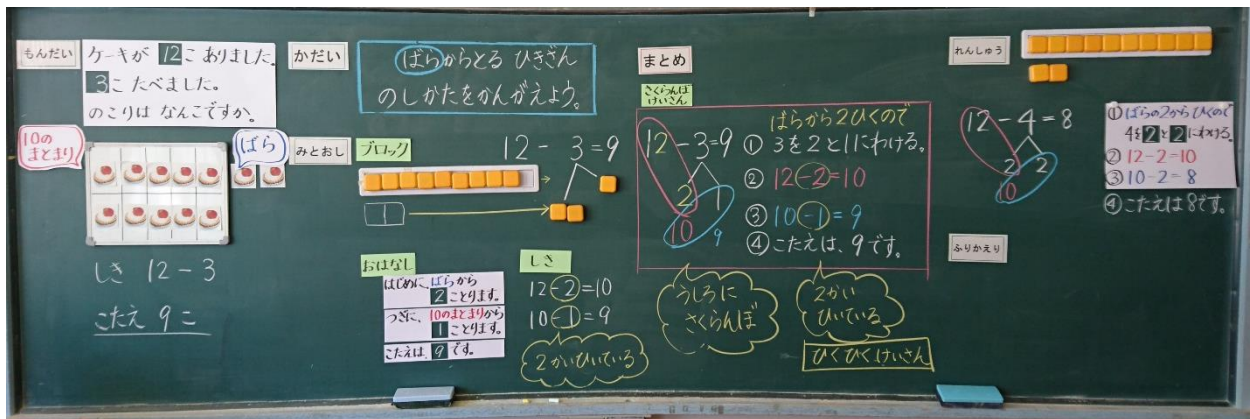 もんだい
ケーキが 12こ ありました。
3こ たべました。
のこりは なんこですか。
10の
まとまり
ばら
しき 12-3
こたえ 9こ
かだい
ばらからとる ひきざん
のしかたをかんがえよう。
みとおし
ブロック
12-3=9
1
おはなし
はじめに、ばらから
2 ことります。
つぎに、10のまとまりから
1 ことります。
こたえは、9 です。
しき
12-2=10
10-1=9
2かいひいている
まとめ
さくらんぼ
けいさん
12-3=9
2 1
10 9
ばらから2ひくので
① 3を2と1にわける。
② 12-2=10
③ 10-1=9
④ こたえは、9です。
うしろに
さくらんぼ
2かい
ひいている
ひくひくけいさん
れんしゅう
12-4=8
2 2
10
① ばらの2からひくので
4を2と2にわける。
② 12-2=10
③ 10-2=8
④ こたえは8です。
ふりかえり